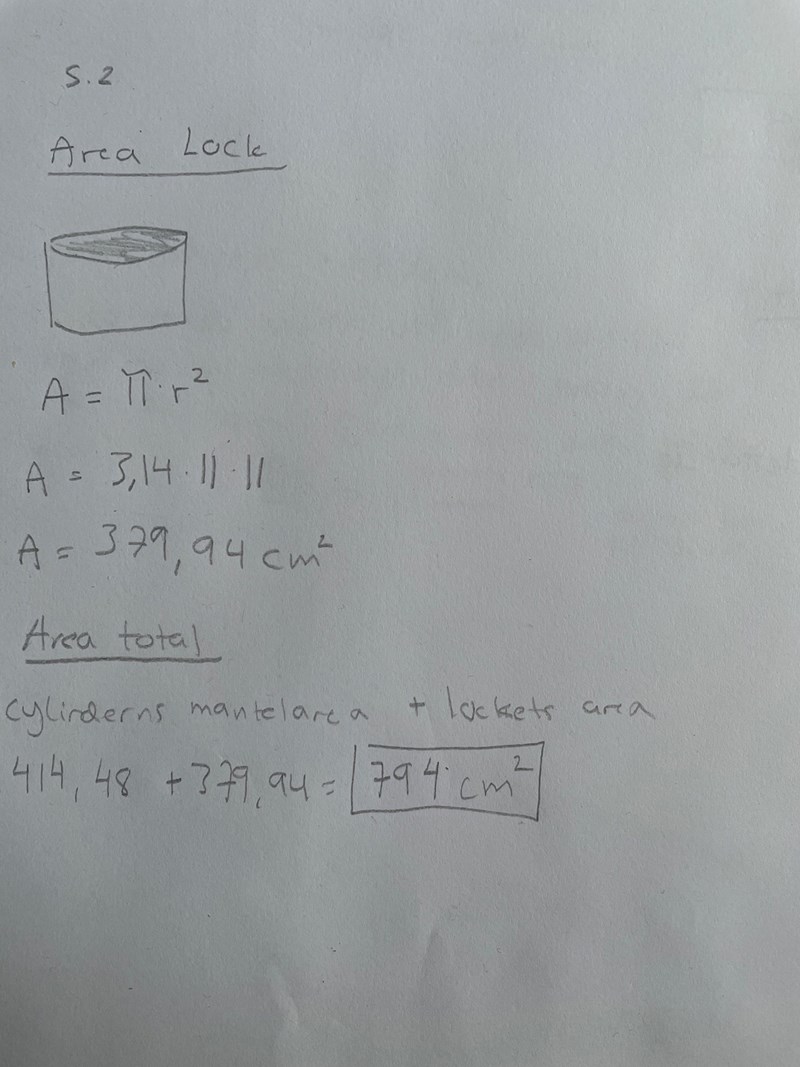 S.2
Area Lock
A = π·r²
A = 3,14·11·11
A = 379,94 cm²
Area total
cylinderns mantelarea + lockets area
414,48 + 379,94 = 794 cm²